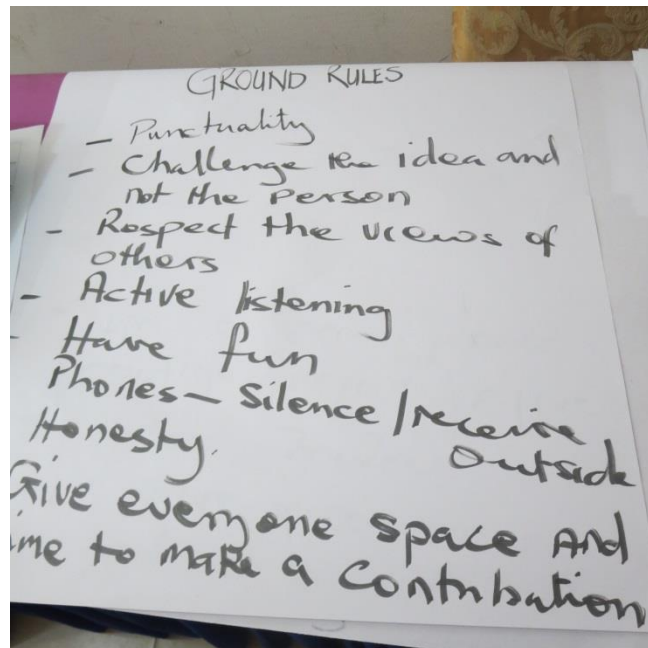 GROUND RULES
- Punctuality
- Challenge the idea and
not the person
- Respect the views of
others
- Active listening
- Have fun
Phones - Silence / receive
outside
Honesty.
Give everyone space and
me to make a contribution